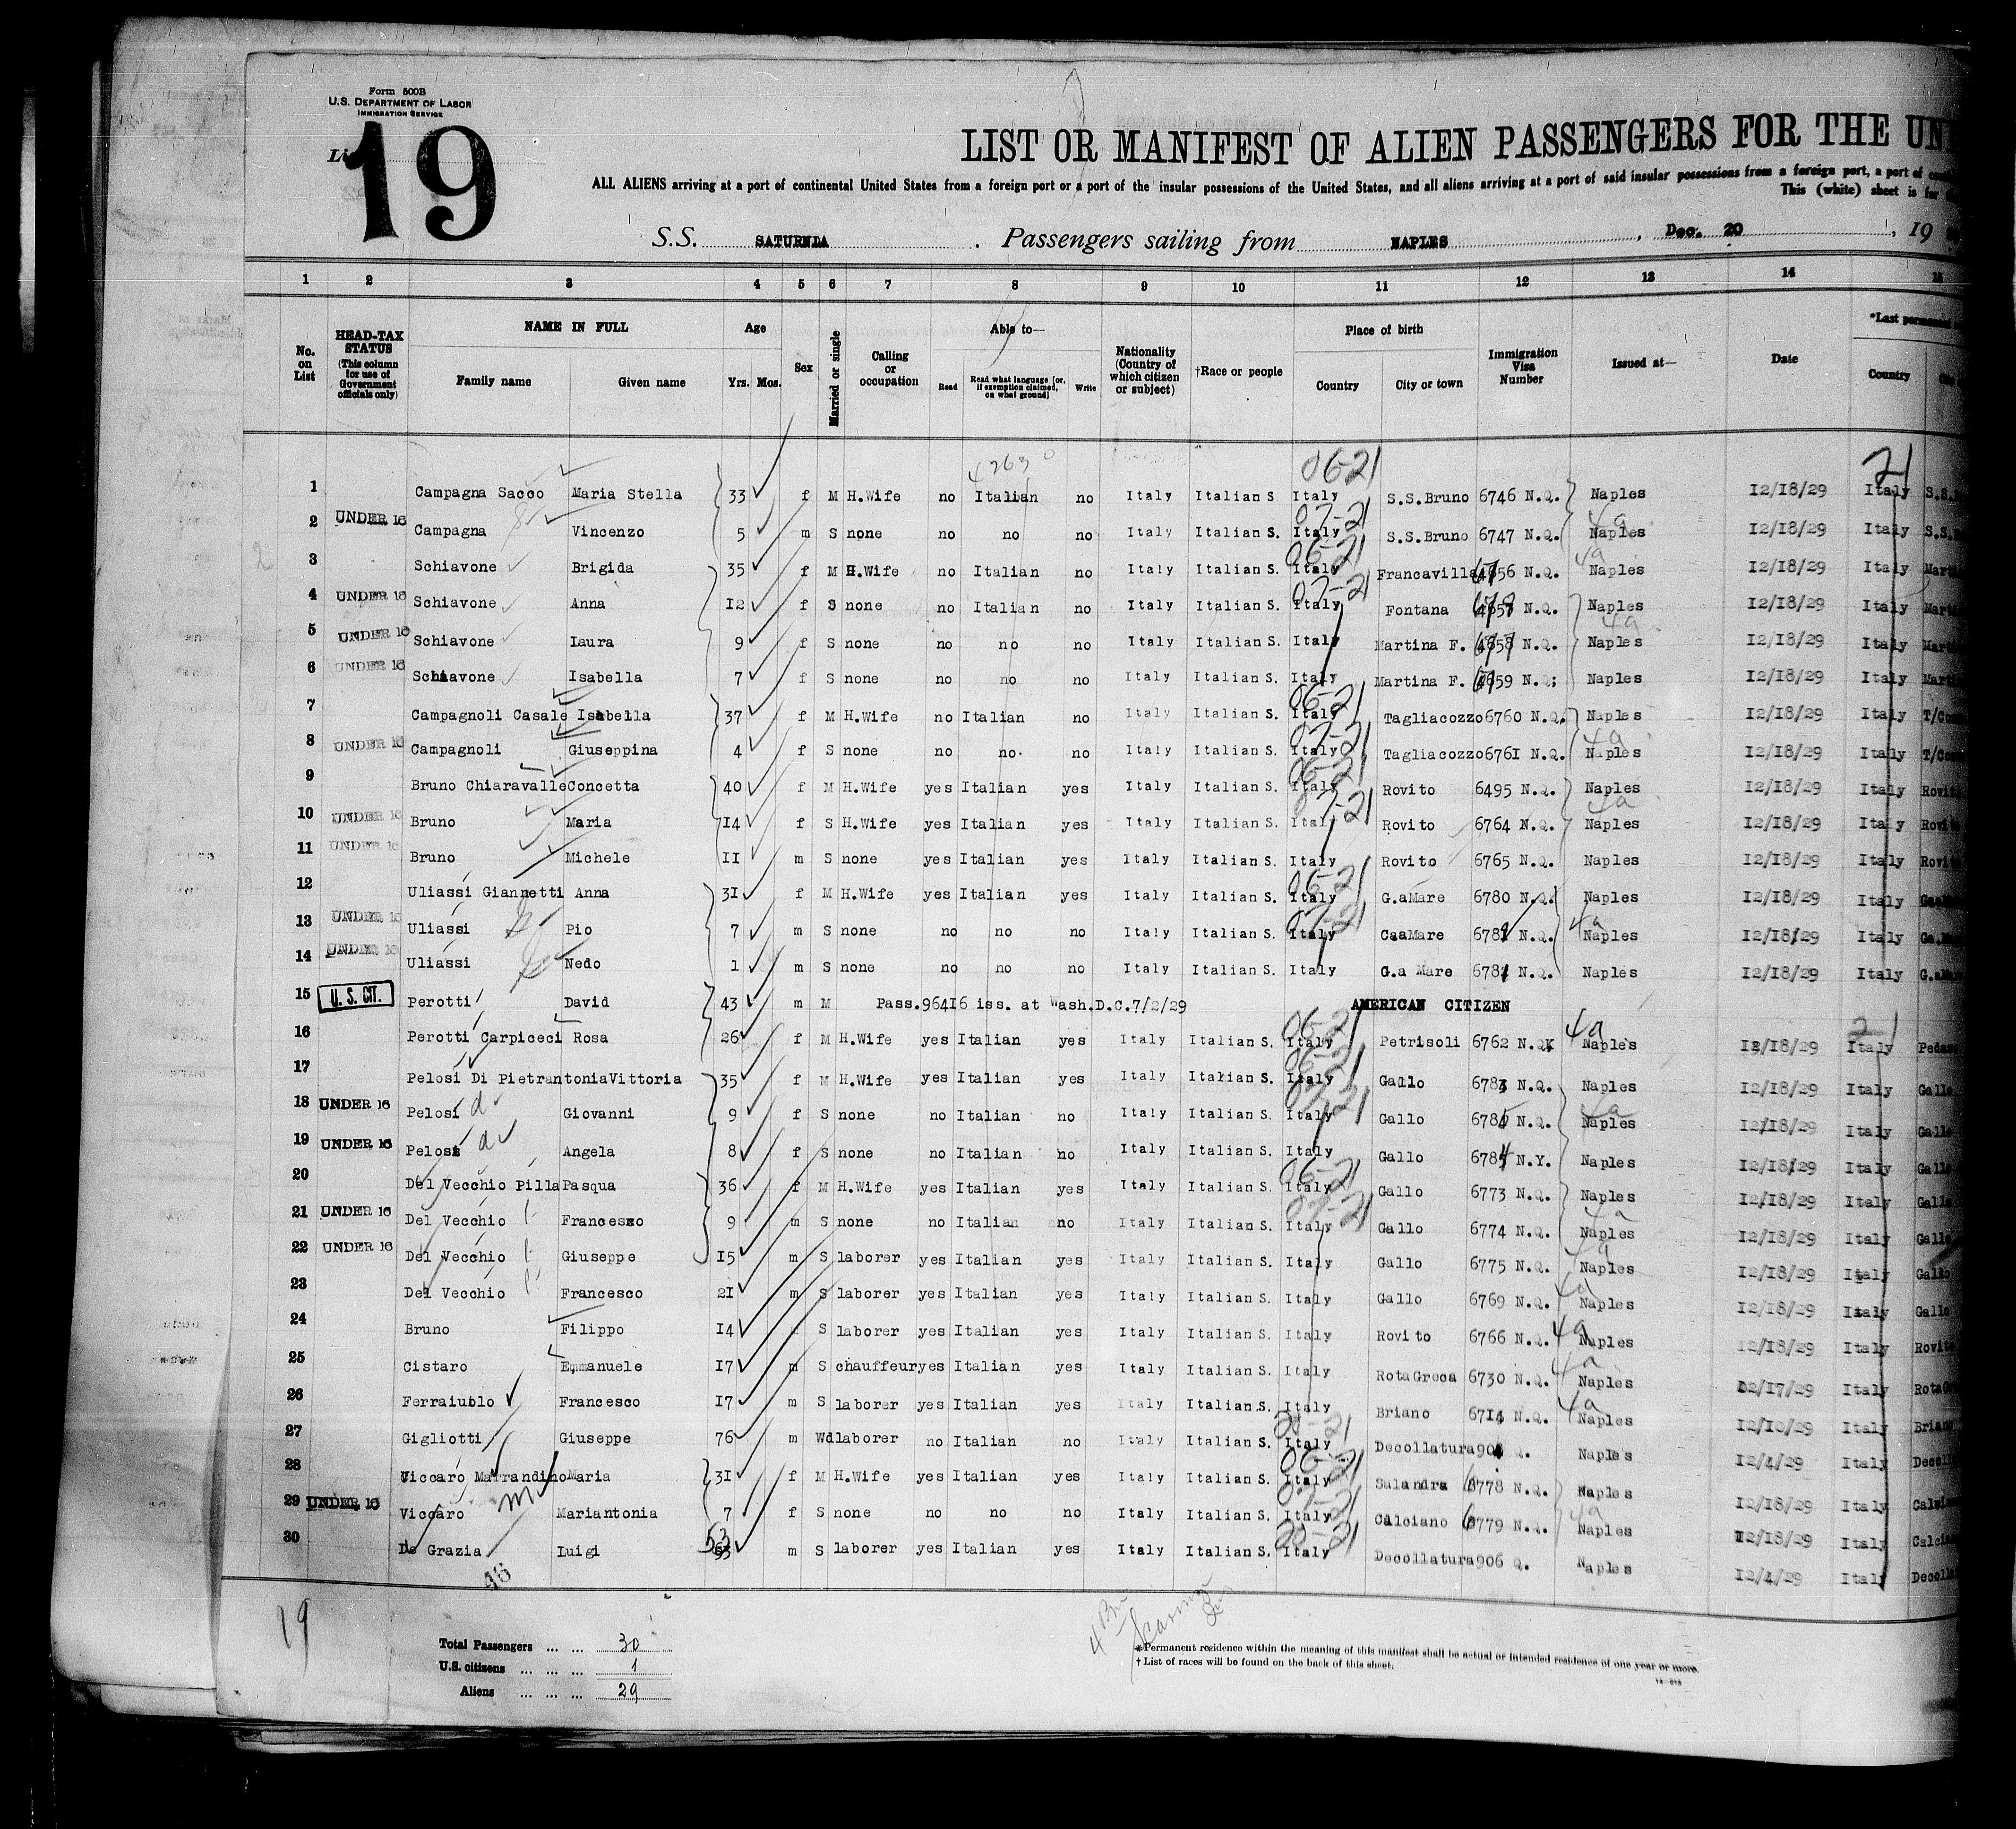 Form 500B
U.S. DEPARTMENT OF LABOR
IMMIGRATION SERVICE
19
LIST OR MANIFEST OF ALIEN PASSENGERS FOR THE UN
ALL ALIENS arriving at a port of continental United States from a foreign port or a port of the insular possessions of the United States, and all aliens arriving at a port of said insular possessions from a foreign port, a port of
This (white) sheet is for
S.S. SATURNIA . Passengers sailing from NAPLES , Dec. 20 , 19
1 2 3 4 5 6 7 8 9 10 11 12 13 14 15
No. on List
HEAD-TAX STATUS (This column for use of Government officials only)
NAME IN FULL
Family name Given name
Age
Yrs. Mos.
Sex
Married or single
Calling or occupation
Able to—
Read Read what language (or, if exemption claimed, on what ground) Write
Nationality (Country of which citizen or subject)
†Race or people
Place of birth
Country City or town
Immigration Visa Number
Issued at—
Date
*Last
Country
1 Campagna Sacco Maria Stella 33 f M H.Wife no Italian no Italy Italian S Italy S.S.Bruno 6746 N.Q. Naples 12/18/29 Italy S.S.
2 UNDER 16 Campagna Vincenzo 5 m S none no no no Italy Italian S. Italy S.S.Bruno 6747 N.Q. Naples 12/18/29 Italy S.S.
3 Schiavone Brigida 35 f M H.Wife no Italian no Italy Italian S. Italy Francavilla N.Q. Naples 12/18/29 Italy
4 UNDER 16 Schiavone Anna 12 f S none no Italian no Italy Italian S. Italy Fontana N.Q. Naples 12/18/29 Italy
5 UNDER 16 Schiavone Laura 9 f S none no no no Italy Italian S. Italy Martina F. N.Q. Naples 12/18/29 Italy
6 UNDER 16 Schiavone Isabella 7 f S none no no no Italy Italian S. Italy Martina F. N.Q; Naples 12/18/29 Italy
7 Campagnoli Casale Isabella 37 f M H.Wife no Italian no Italy Italian S. Italy Tagliacozzo 6760 N.Q. Naples 12/18/29 Italy
8 UNDER 16 Campagnoli Giuseppina 4 f S none no no. no Italy Italian S. Italy Tagliacozzo 6761 N.Q. Naples 12/18/29 Italy
9 Bruno Chiaravalle Concetta 40 f M H.Wife yes Italian yes Italy Italian S. Italy Rovito 6495 N.Q. Naples 12/18/29 Italy Rovito
10 UNDER 16 Bruno Maria 14 f S H.Wife yes Italian yes Italy Italian S. Italy Rovito 6764 N.Q. Naples 12/18/29 Italy Rovito
11 UNDER 16 Bruno Michele 11 m S none yes Italian yes Italy Italian S. Italy Rovito 6765 N.Q. Naples 12/18/29 Italy
12 Uliassi Giannetti Anna 31 f M H.Wife yes Italian yes Italy Italian S. Italy G.aMare 6780 N.Q. Naples 12/18/29 Italy
13 UNDER 16 Uliassi Pio 7 m S none no no no Italy Italian S. Italy CaaMare N.Q. Naples 12/18/29 Italy
14 UNDER 16 Uliassi Nedo 1 m S none no no no Italy Italian S. Italy G.a Mare N.Q. Naples 12/18/29 Italy
15 U. S. CIT. Perotti David 43 m M Pass.96416 iss. at Wash.D.C.7/2/29 AMERICAN CITIZEN
16 Perotti Carpiceci Rosa 26 f M H.Wife yes Italian yes Italy Italian S. Italy Petrisoli 6762 N.Q. Naples 12/18/29 Italy
17 Pelosi Di Pietrantonia Vittoria 35 f M H.Wife yes Italian yes Italy Italian S. Italy Gallo 6783 N.Q. Naples 12/18/29 Italy Gallo
18 UNDER 16 Pelosi Giovanni 9 f S none no Italian no Italy Italian S. Italy Gallo N.Q. Naples 12/18/29 Italy Gallo
19 UNDER 16 Pelosi Angela 8 f S none no Italian no Italy Italian S. Italy Gallo N.Y. Naples 12/18/29 Italy Gallo
20 Del Vecchio Pilla Pasqua 36 f M H.Wife yes Italian yes Italy Italian S. Italy Gallo 6773 N.Q. Naples 12/18/29 Italy Gallo
21 UNDER 16 Del Vecchio Francesco 9 m S none no Italian no Italy Italian S. Italy Gallo 6774 N.Q. Naples 12/18/29 Italy Gallo
22 UNDER 16 Del Vecchio Giuseppe 15 m S laborer yes Italian yes Italy Italian S. Italy Gallo 6775 N.Q. Naples 12/18/29 Italy Gallo
23 Del Vecchio Francesco 21 m S laborer yes Italian yes Italy Italian S. Italy Gallo 6769 N.Q. Naples 12/18/29 Italy Gallo
24 Bruno Filippo 14 S laborer yes Italian yes Italy Italian S. Italy Rovito 6766 N.Q. Naples 12/18/29 Italy Rovito
25 Cistaro Emmanuele 17 m S chauffeur yes Italian yes Italy Italian S. Italy RotaGreca 6730 N.Q. Naples 12/17/29 Italy
26 Ferraiuolo Francesco 17 m S laborer yes Italian yes Italy Italian S. Italy Briano 6714 N.Q. Naples Italy Briano
27 Gigliotti Giuseppe 76 m Wd laborer no Italian no Italy Italian S. Italy Decollatura Q. Naples 12/4/29 Italy
28 Viccaro Marrandino Maria 31 f M H.Wife yes Italian yes Italy Italian S. Italy Salandra 6778 N.Q. Naples 12/18/29 Italy
29 UNDER 16 Viccaro Mariantonia 7 f S none no no no Italy Italian S. Italy Calciano 6779 N.Q. Naples 12/18/29 Italy
30 De Grazia Luigi 53 m S laborer yes Italian yes Italy Italian S. Italy Decollatura 906 Q. Naples 12/4/29 Italy
19
Total Passengers ... ... 30
U.S. citizens ... ... ... 1
Aliens ... ... ... 29
*Permanent residence within the meaning of this manifest shall be actual or intended residence of one year or more.
† List of races will be found on the back of this sheet.